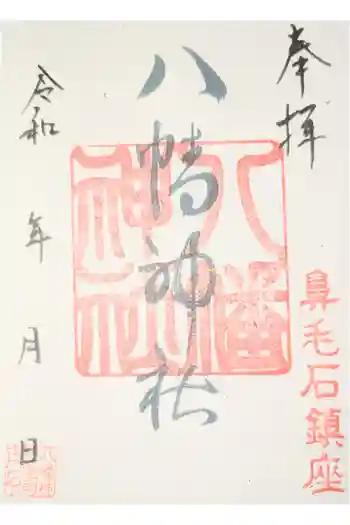 奉拝
鼻毛石鎮座
八幡神社
八幡神社
令和 年 月 日